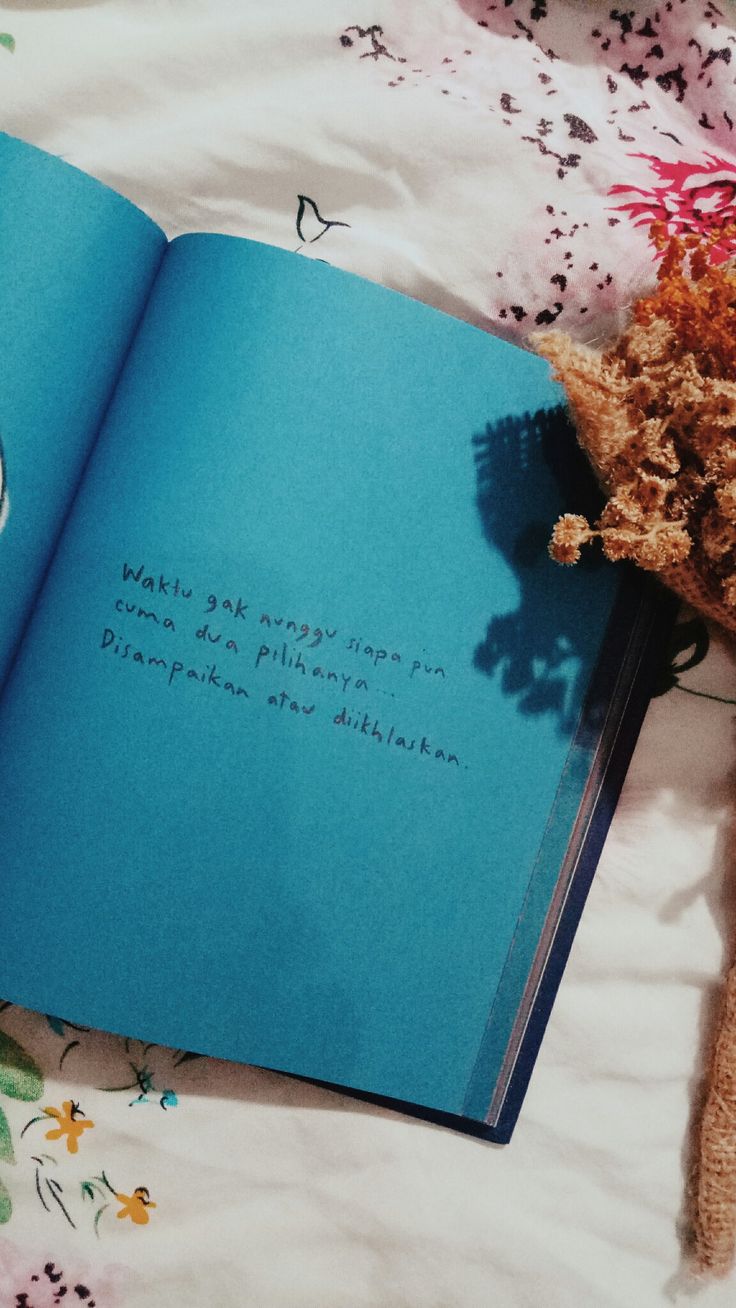 Waktu gak nunggu siapa pun
cuma dua pilihanya...
Disampaikan atau diikhlaskan.